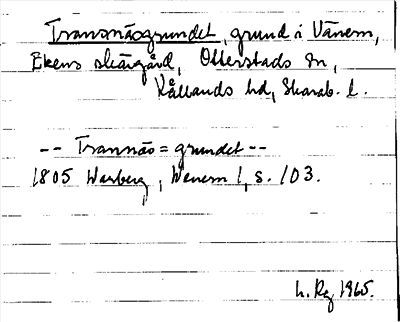 Trannäsgrundet, grund i Vänern,
Ekens skärgård, Otterstads sn,
Kållands hd, Skarab. l.
-- Trannäs=grundet --
1805 Warberg, Wenern 1, s. 103.
h. Rz 1965.